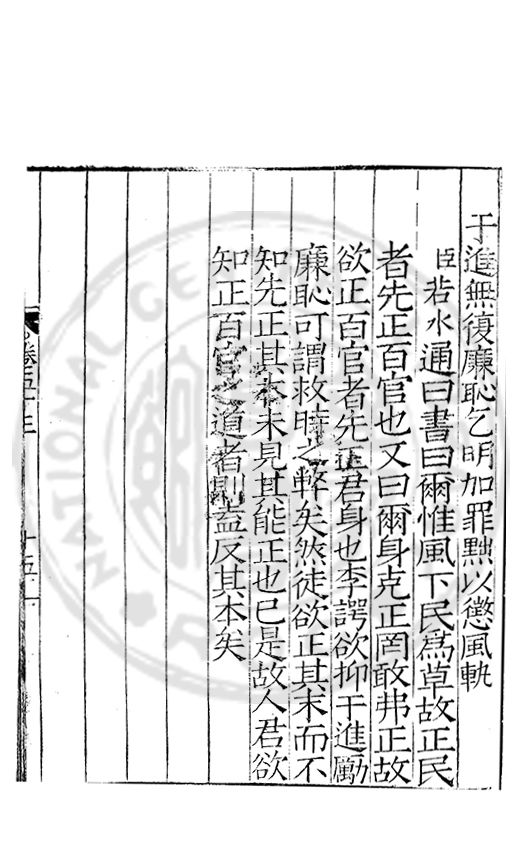 干進無復廉恥乞明加罪黜以懲風軌
臣若水通曰書曰爾惟風下民爲草故正民
者先正百官也又曰爾身克正罔敢弗正故
欲正百官者先正君身也李諤欲抑干進勵
廉恥可謂救時之弊矣然徒欲正其末而不
知先正其本未見其能正也已是故人君欲
知正百官之道者則盍反其本矣
卷五十三
十五
NATIONAL CE